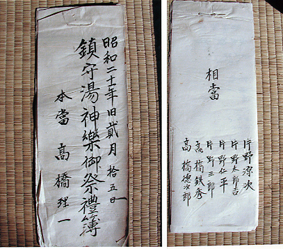 昭和二十年旧貳月拾五日
鎮守湯神樂御祭禮簿
本當 高橋理一
相當
片野源次
片野太郎吉
片野仁平
片野三郎
高橋鉄秀
高橋德次郎